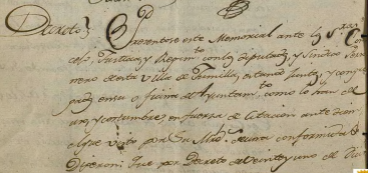 Decreto
Presentose este Memorial ante los Sres. Con
cejo, Justicia, y Regimto. con los diputados, y Sindico Perso
nero de esta Villa de Jumilla, estando juntos, y congre
gados en su oficina de Ayuntamto. como lo han de
uso, y costumbre, en fuerza de citacion ante diem
el qe. visto por Sus Mds. de una conformidad
Dijeron: Que por Decreto de veinte y uno de Di